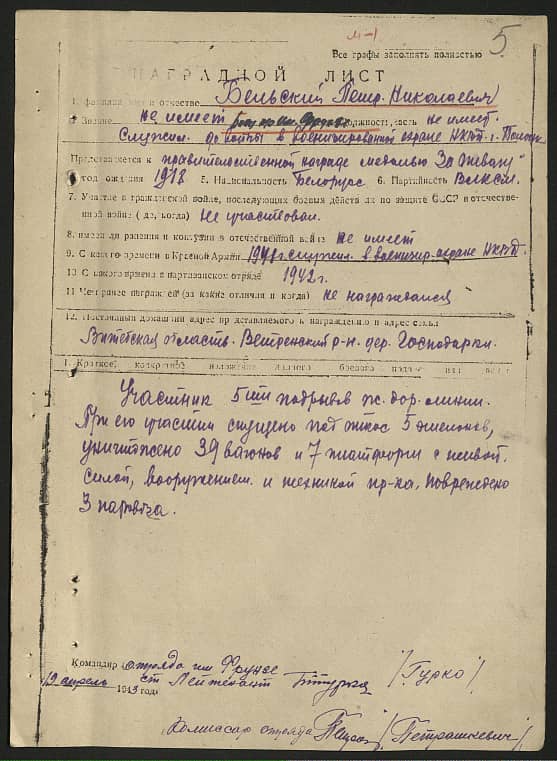 м-1
5
Все графы заполнять полностью
НАГРАДНОЙ ЛИСТ
1. фамилия имя и отчество Бельский Петр Николаевич
2. Звание не имеет должность, часть не имеет.
Служил до войны в военизированной охране НКПТ г. Полоцк
Представляется к правительственной награде медалью "За отвагу"
год ождения 1918 5. Национальность Белорус 6. Партийность ВЛКСМ.
7. Участие в гражданской войне, последующих боевых действиях по защите СССР и отечествен-
ной войне (где, когда) Не участвовал.
8. имеет ли ранения и контузии в отечественной войне не имеет
9. С какого времени в Красной Армии служил в военизир. охране
10 С какого времени в партизанском отряде 1942 г.
11 Чем ранее награжден (за какие отличия и когда) не награждался
12. Постоянный домашний адрес представляемого к награждению и адрес семьи
Витебская область Ветренский р-н дер. Господарки.
1. Краткое, конкретное изложение личного боевого подвига или
Участник 5ти подрывов ж. дор. линии.
При его участии спущено под откос 5 эшелонов,
уничтожено 39 вагонов и 7 платформ с живой
силой, вооружением и техникой пр-ка, повреждено
3 паровоза.
Командир отряда им Фрунзе
ст Лейтенант /Гурко/
19 апрель 1943 года
Комиссар отряда /Петрашкевич/